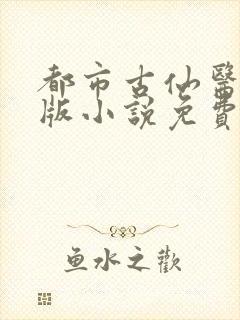 都市古仙醫
版小說免費
鱼水之歡